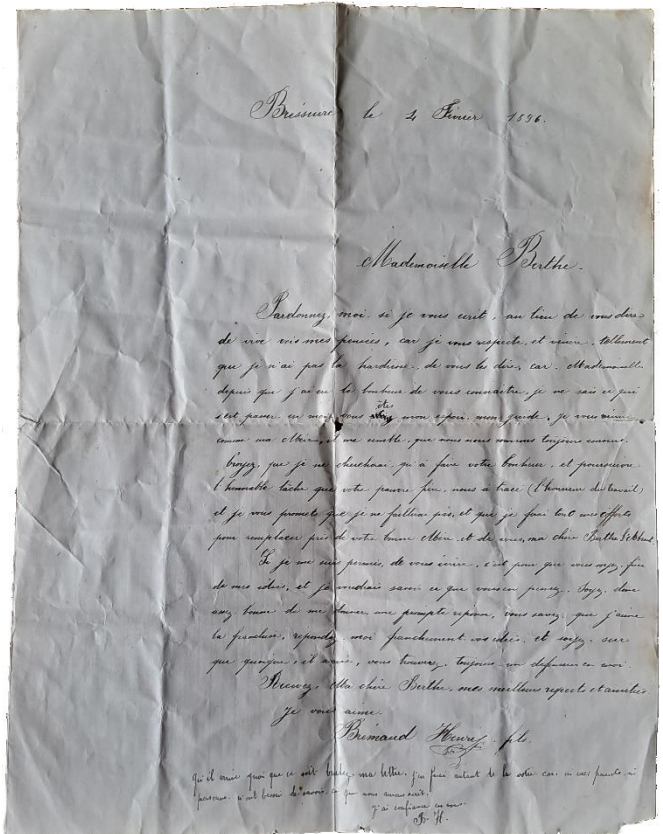 Bressuire le 2 Fevrier 1896.
Mademoiselle Berthe.
Pardonnez, moi si je vous ecrit, au lieu de vous dire
de vive voix mes pensées, car je vous respecte, et vénère tellement
que je n'ai pas la hardiesse de vous les dire, car Mademoiselle
depuis que j'ai eu le bonheur de vous connaitre, je ne sais ce qui
s'est passer en moi, vous êtes mon espoir mon guide, je vous aime
comme ma Mère, et me semble, que nous nous sommes toujours connus.
Croyez, que je ne chercherai qu'à faire votre bonheur, et poursuivre
l'honorable tâche que votre pauvre père, nous à tracé (l'honneur du travail)
et je vous promets que je ne faillirai pas, et que je ferai tout mes efforts
pour remplacer près de votre bonne Mère et de vous, ma chère Berthe
Si je me suis permis, de vous écrire, c'est pour que vous soyez fixé
de mes idées, et je voudrais savoir ce que vous en pensez. Soyez, donc
assez bonne de me donner une prompte réponse, vous savez, que j'aime
la franchise, repondez, moi franchement vos idées, et soyez sur
que quoique, il arrive, vous trouverez, toujours un defenseur en moi.
Recevez, Ma chère Berthe, mes meilleurs respects et amitiés.
Je vous aime.
Brémaud Henry fils
qu'il arrive quoi que ce soit brulez ma lettre, j'en ferai autant de la votre car ni mes parents ni
personne n'ont besoin de savoir ce que nous aurons écrit.
j'ai confiance en vous
B. H.